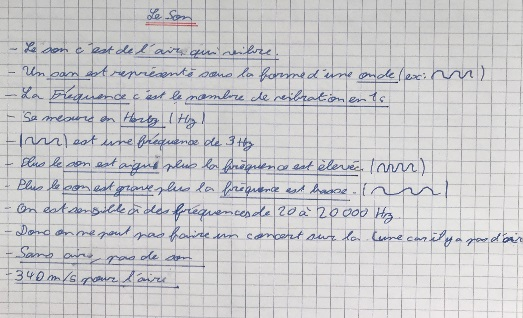 Le Son
- Le son c'est de l'air qui vibre.
- Un son est représenté sous la forme d'une onde (ex: )
- La Fréquence c'est le nombre de vibration en 1s
- Sa mesure en Hertz (Hz)
- ( ) est une fréquence de 3 Hz
- Plus le son est aigu plus la fréquence est élevée. ( )
- Plus le son est grave plus la fréquence est basse. ( )
- On est sensible à des fréquences de 20 à 20 000 Hz
- Donc on ne peut pas faire un concert sur la lune car il y a pas d'air
- Sans aire, pas de son
- 340 m/s pour l'aire